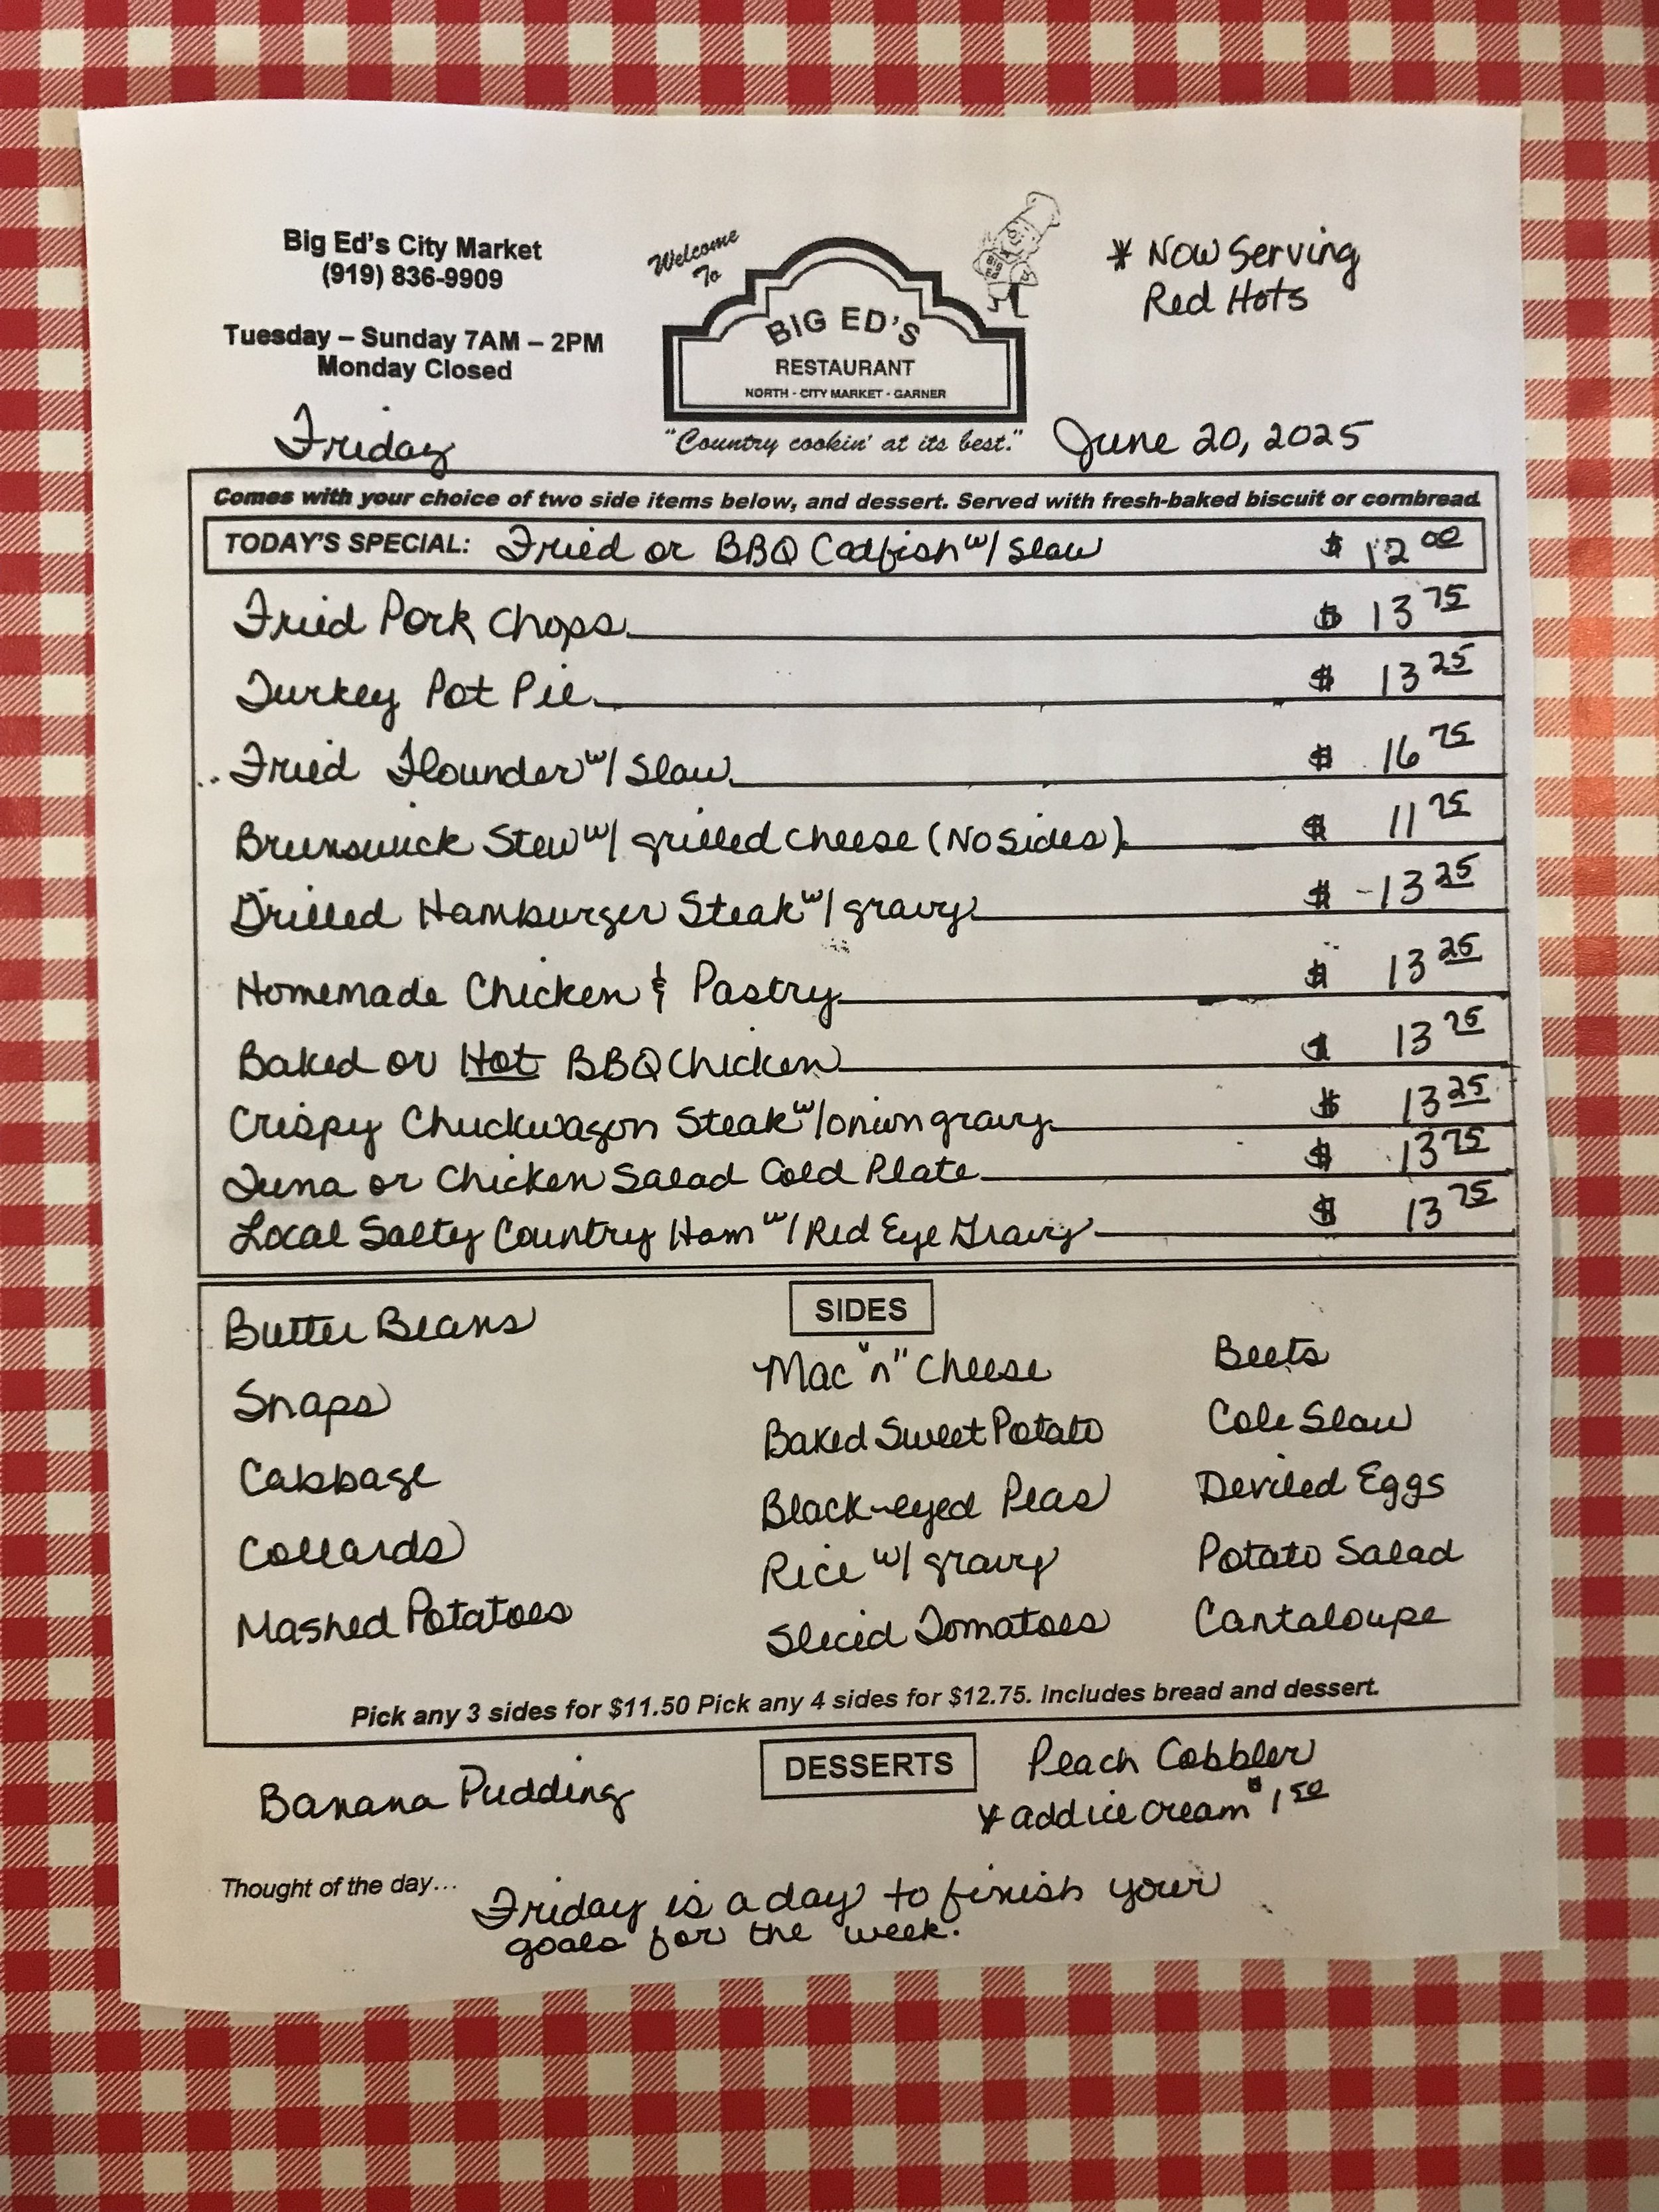 Big Ed's City Market
(919) 836-9909
Tuesday – Sunday 7AM – 2PM
Monday Closed
Welcome
To
BIG ED
BIG ED'S
RESTAURANT
NORTH - CITY MARKET - GARNER
"Country cookin' at its best."
* Now Serving
Red Hots
Friday
June 20, 2025
Comes with your choice of two side items below, and dessert. Served with fresh-baked biscuit or cornbread.
TODAY'S SPECIAL: Fried or BBQ Catfish w/ Slaw $ 12 00
Fried Pork Chops $ 13 75
Turkey Pot Pie $ 13 25
Fried Flounder w/ Slaw $ 16 75
Brunswick Stew w/ grilled cheese (No Sides) $ 11 75
Grilled Hamburger Steak w/ gravy $ 13 25
Homemade Chicken & Pastry $ 13 25
Baked or Hot BBQ Chicken $ 13 75
Crispy Chuckwagon Steak w/ onion gravy $ 13 25
Tuna or Chicken Salad Cold Plate $ 13 75
Local Salty Country Ham w/ Red Eye Gravy $ 13 75
SIDES
Butter Beans
Snaps
Cabbage
Collards
Mashed Potatoes
Mac "n" Cheese
Baked Sweet Potato
Black-eyed Peas
Rice w/ gravy
Sliced Tomatoes
Beets
Cole Slaw
Deviled Eggs
Potato Salad
Cantaloupe
Pick any 3 sides for $11.50 Pick any 4 sides for $12.75. Includes bread and dessert.
DESSERTS
Banana Pudding
Peach Cobbler
* add ice cream $1 50
Thought of the day... Friday is a day to finish your
goals for the week.